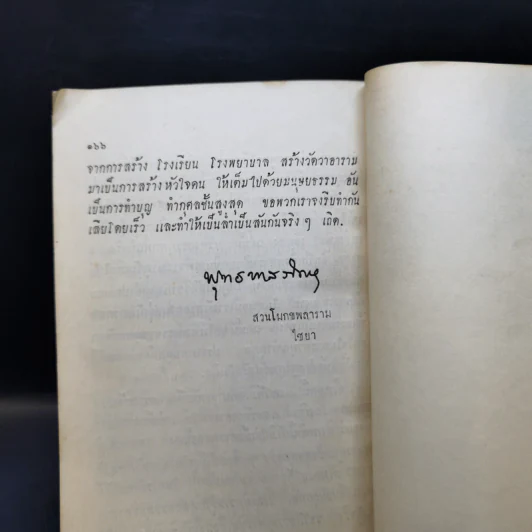 ๑๖๖
จากการสร้าง โรงเรียน โรงพยาบาล สร้างวัดวาอาราม
มาเป็นการสร้างหัวใจคน ให้เต็มไปด้วยมนุษยธรรม อัน
เป็นการทำบุญ ทำกุศลชั้นสูงสุด ขอพวกเราจงรีบทำกัน
เสียโดยเร็ว และทำให้เป็นล่ำเป็นสันกันจริง ๆ เถิด.
พุทธทาสภิกขุ
สวนโมกขพลาราม
ไชยา